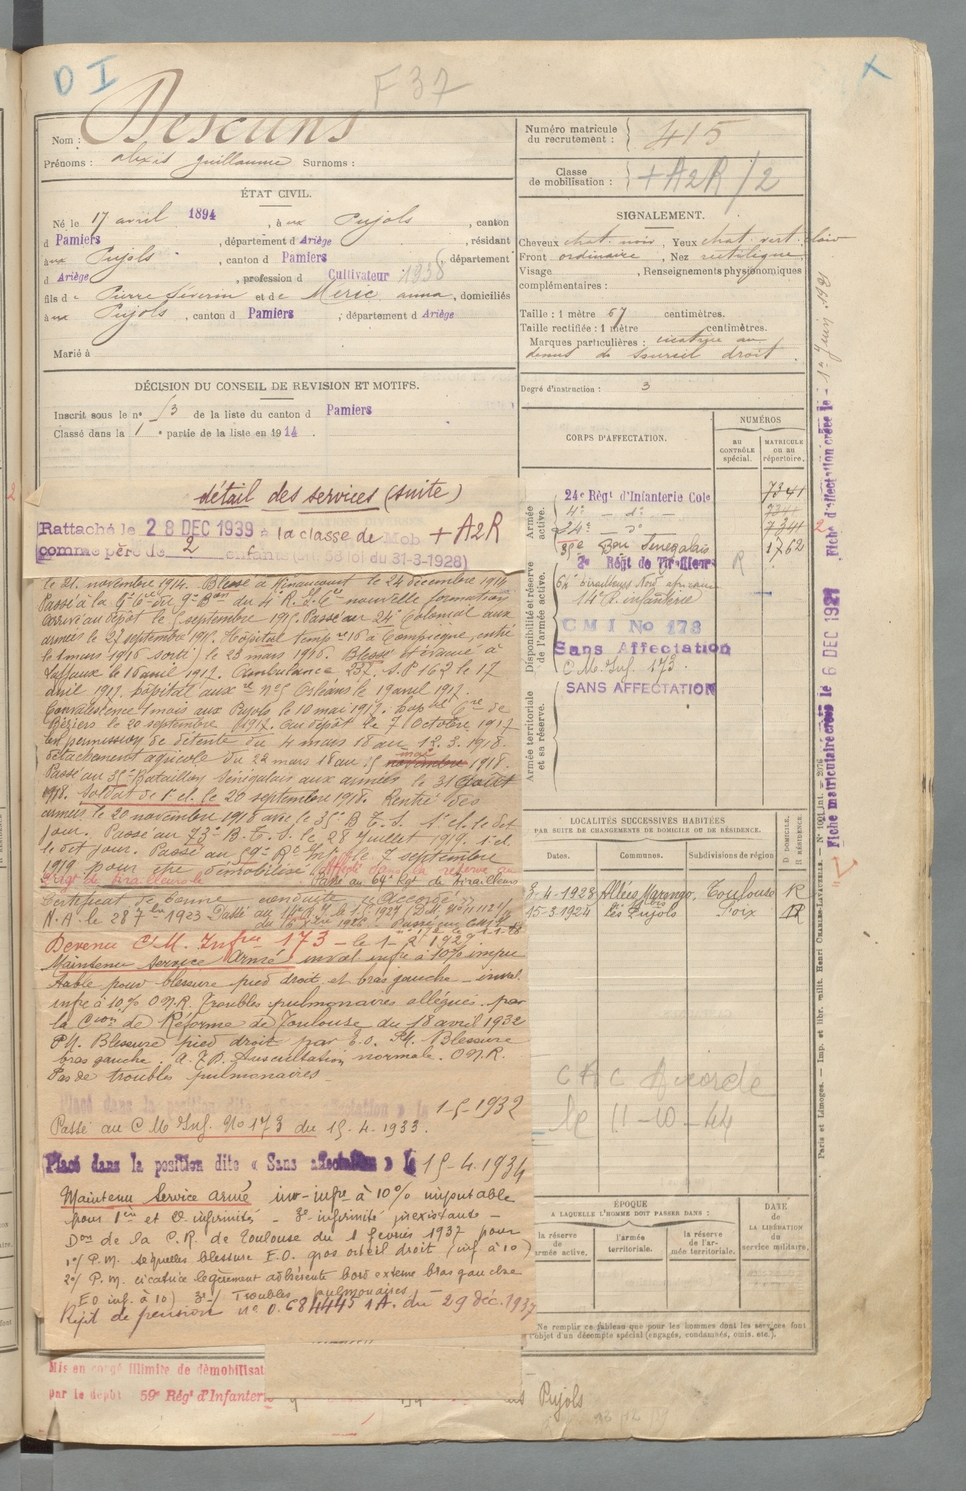 D I
F 37
X
Nom : Descuns
Prénoms : alexis guillaume Surnoms :
ÉTAT CIVIL.
Né le 17 avril 1894, à aux Pujols, canton
d Pamiers, département d Ariège, résidant
à aux Pujols, canton d Pamiers, département
d Ariège, profession d Cultivateur 1938
fils de Pierre Séverin et de Méric anna, domiciliés
à aux Pujols, canton d Pamiers, département d Ariège
Marié à
DÉCISION DU CONSEIL DE REVISION ET MOTIFS.
Inscrit sous le n° 53 de la liste du canton d Pamiers
Classé dans la 1e partie de la liste en 1914.
Numéro matricule du recrutement : 415
Classe de mobilisation : + A2R/2
SIGNALEMENT.
Cheveux chat. noir, Yeux chat. vert. clair
Front ordinaire, Nez rectiligne
Visage , Renseignements physionomiques
complémentaires :
Taille : 1 mètre 67 centimètres.
Taille rectifiée : 1 mètre centimètres.
Marques particulières : cicatrice au
dessus de sourcil droit.
Degré d'instruction : 3
CORPS D'AFFECTATION.
NUMÉROS
AU CONTRÔLE spécial.
MATRICULE OU AU répertoire.
Armée active.
24e Régt d'Infanterie Cole 7341
4e — do — 7341
24e — do 7341
35e Bon Sénégalais 1762
Disponibilité et réserve de l'armée active.
2e Régt de Tirailleurs R
64e Tirailleurs Nord africains
14e R. infanterie
C M I No 173
Sans Affectation
C. M. Inf. 173.
Armée territoriale et sa réserve.
SANS AFFECTATION
détail des services (suite)
Rattaché le 28 DEC 1939 à la classe de Mob + A2R
comme père de 2 enfants (art. 58 loi du 31-3-1928)
le 21. novembre 1914. Blessé à Minaucourt le 24 décembre 1914
Passé à la 9e Cie du 9e Bon du 4e R. I. Cal nouvelle formation
arrivé au dépôt le 5 septembre 1915. Passé au 24e Colonial aux
armées le 27 septembre 1915. Hôpital temp re 16 à Compiègne, entré
le 1 mars 1916 sorti le 23 mars 1916. Blessé et évacué à
Laffaux le 16 avril 1917. Ambulance 232. S. P 162 le 17
avril 1917. hôpital aux re No 5 Orléans le 19 avril 1917.
Convalescence 1 mois aux Pujols le 10 mai 1917. hop tal de
Béziers le 20 septembre 1917. Au dépôt le 7 Octobre 1917
en permission de détente du 4 mars 18 au 12. 3. 1918.
détachement agricole du 22 mars 18 au 5 novembre mai 1918.
Passé au 35e Bataillon Sénégalais aux armées le 31 août
1918. Soldat de 1e cl. le 20 septembre 1918. Rentré des
armées le 20 novembre 1918 avec le 35e B. T. S. 1e cl. le dit
jour. Passé au 73e B. T. S. le 28 Juillet 1919. 1e cl.
le dit jour. Passé au 59e Rt le 7 septembre
1919 pour être démobilisé. Affecté dans la réserve au
Régt de tirailleurs le Passé au 64e Rgt de tirailleurs
Certificat de bonne conduite « Accordé »
N. A. le 28 7bre 1923
Devenu C. M. Infrie 173 — le 1er 1929
Maintenu service Armé inval infre à 10% impu
table pour blessure pied droit et bras gauche — inval.
infre à 10% O.N.R. Troubles pulmonaires allégués. par
la Cion de Réforme de Toulouse du 18 avril 1932
P.V. Blessure pied droit par E.O. P.V. Blessure
bras gauche. Auscultation normale. O.N.R.
Pas de troubles pulmonaires —
Placé dans la position dite « Sans affectation » le 1-5-1932
Passé au C. M. Inf. No 173 du 15. 4. 1933.
Placé dans la position dite « Sans affectation » le 15-4. 1934
Maintenu Service armé inv-infre à 10% imputable
pour 1ère et 2e infirmités — 3e infirmité préexistante —
Don de la C. R. de Toulouse du 1 février 1937 pour
1°/ P. M. séquelles blessure E.O. gros orteil droit (inf à 10)
2°/ P. M. cicatrice légèrement adhérente bord externe bras gauche
E O inf. à 10) 3°/ Troubles pulmonaires —
Rejet de pension n° 0.684445 1A. du 29 déc. 1937
Mis en congé illimité de démobilisat
par le dépôt 59e Régt d'Infanterie
Pujols
LOCALITÉS SUCCESSIVES HABITÉES
PAR SUITE DE CHANGEMENTS DE DOMICILE OU DE RÉSIDENCE.
Dates. Communes. Subdivisions de région D. DOMICILE. R. RÉSIDENCE.
3-4-1928 Allées Marengo, Toulouse R
15-3-1924 Les Pujols Foix R
C A C Accordé
le 11-10-44
ÉPOQUE
A LAQUELLE L'HOMME DOIT PASSER DANS :
la réserve de l'armée active.
l'armée territoriale.
la réserve de l'armée territoriale.
DATE de LA LIBÉRATION du service militaire.
Ne remplir ce tableau que pour les hommes dont les services font
l'objet d'un décompte spécial (engagés, condamnés, omis, etc.).
Fiche d'affectation créée le 1er Juin 1921
Fiche matriculaire créée le 6 DEC 1921
Paris et Limoges. — Imp. et libr. milit. Henri CHARLES-LAVAUZELLE.